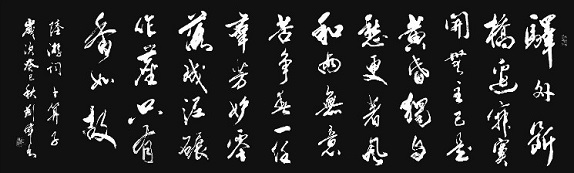 驛外斷
橋邊寂寞
開無主已是
黃昏獨自
愁更著風
和雨無意
苦爭春一任
羣芳妒零
落成泥碾
作塵只有
香如故
陸游詞卜算子
歲次癸巳秋劉